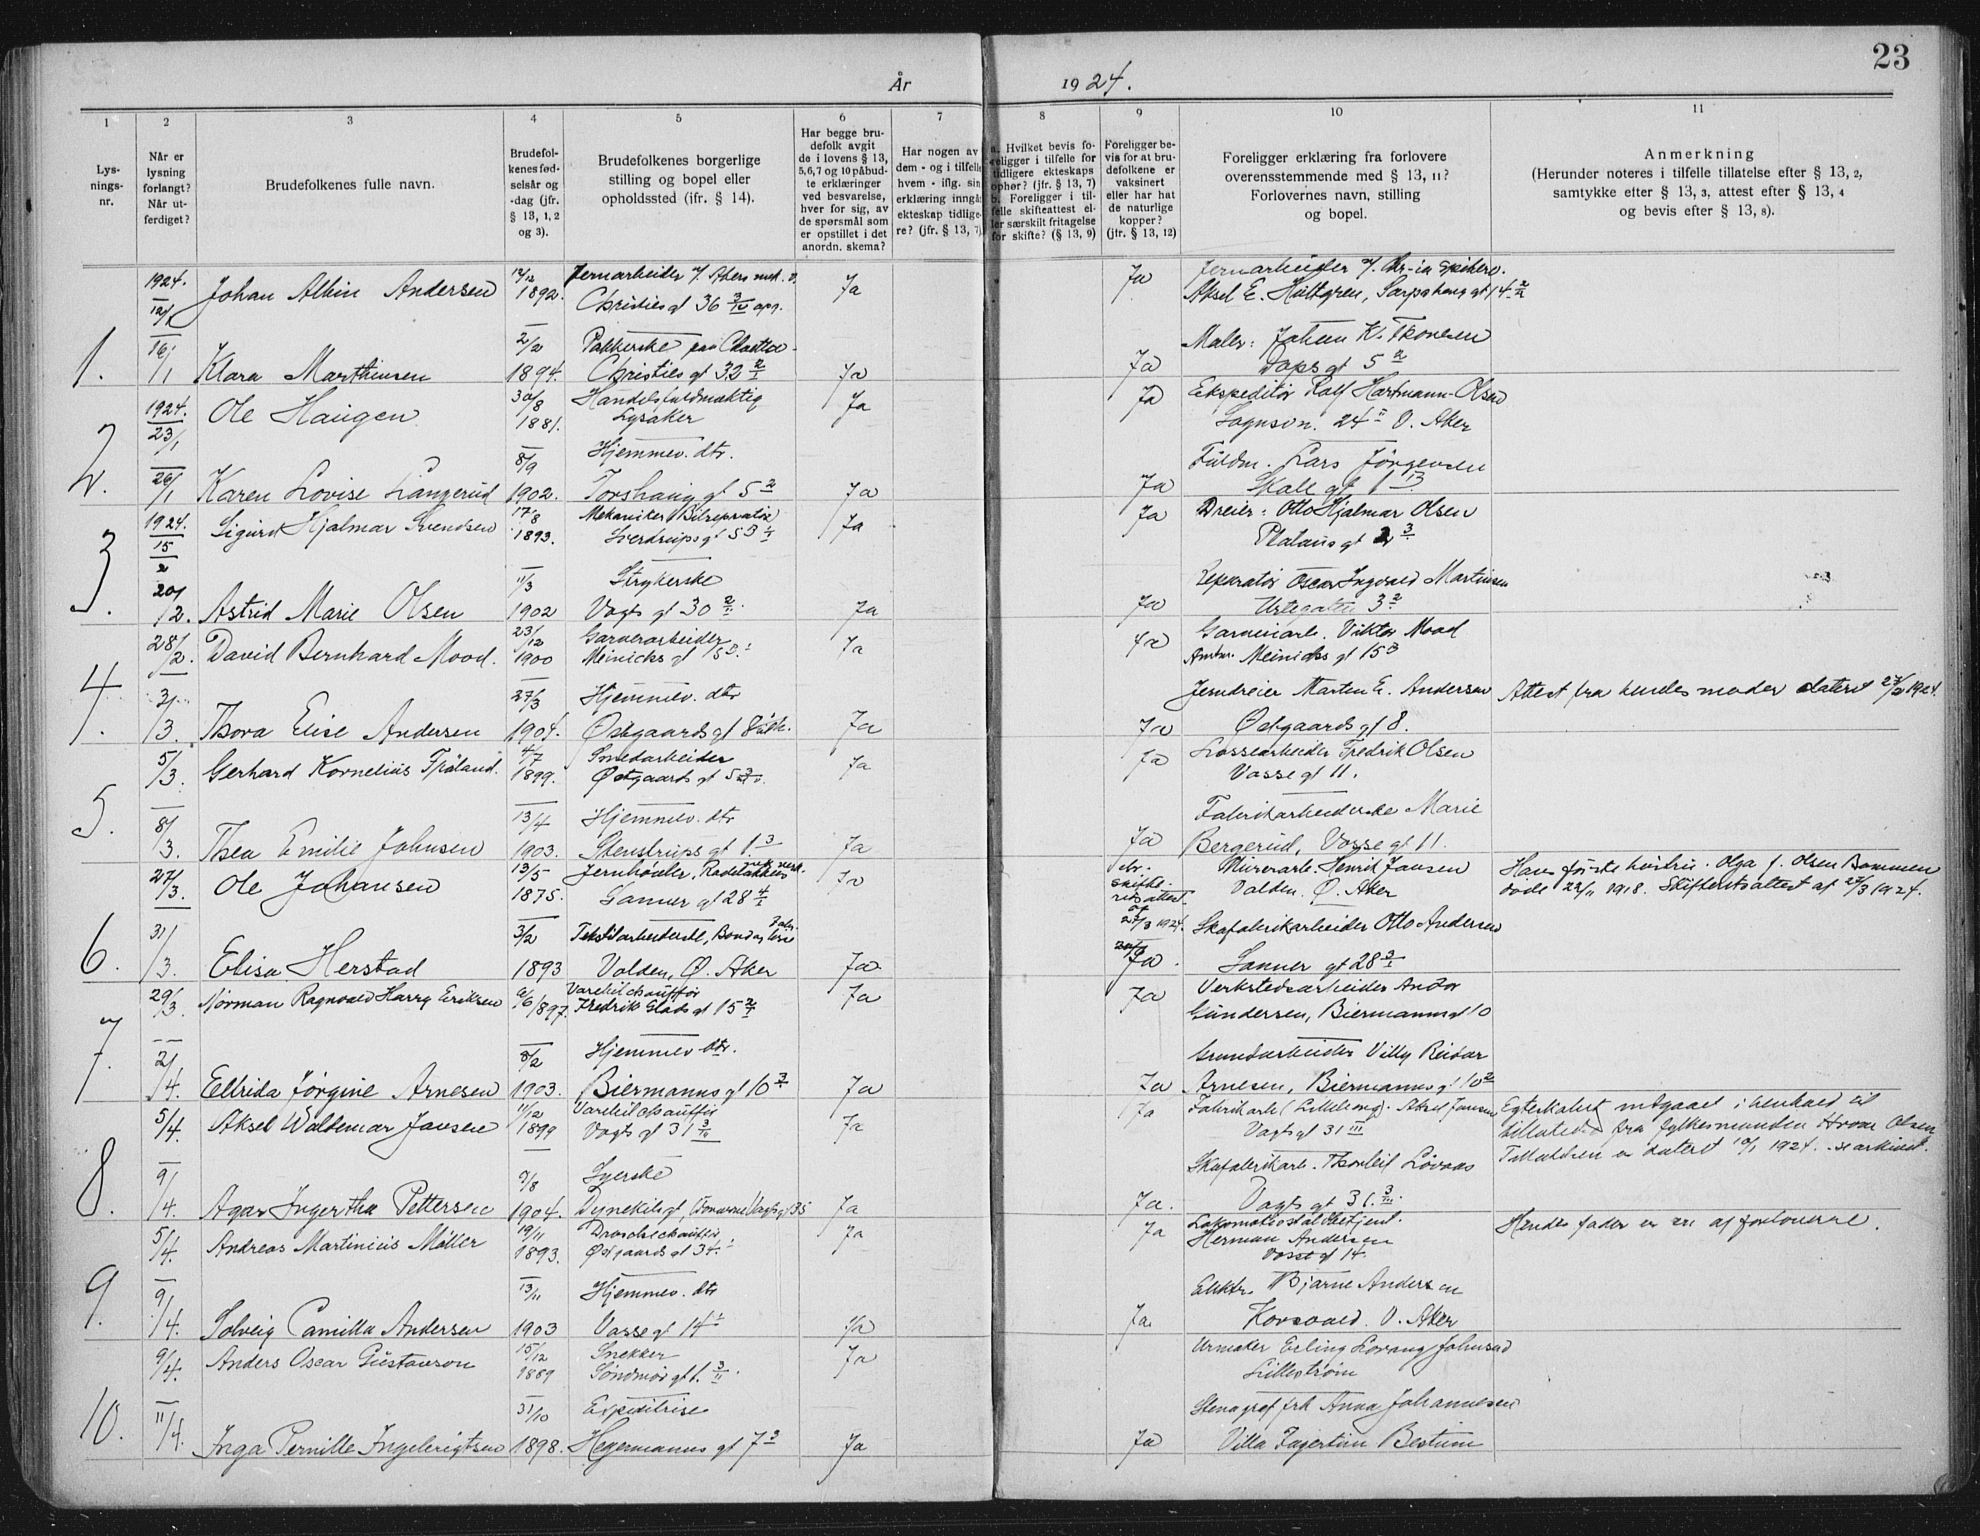 23
År 1924.
1 2 3 4 5 6 7 8 9 10 11
Lysnings-nr.
Når er lysning forlangt? Når utferdiget?
Brudefolkenes fulle navn.
Brudefolkenes fødselsår og -dag (jfr. § 13, 1, 2 og 3).
Brudefolkenes borgerlige stilling og bopel eller opholdssted (ifr. § 14).
Har begge brudefolk avgit de i lovens § 13, 5,6,7 og 10 påbudte erklæringer ved besvarelse, hver for sig, av de spørsmål som er opstillet i det anordn. skema?
Har nogen av dem - og i tilfelle hvem - iflg. sin erklæring inngått ekteskap tidligere? (jfr. § 13, 7)
a. Hvilket bevis foreligger i tilfelle for tidligere ekteskaps ophør? (jfr. § 13, 7) b. Foreligger i tilfelle skifteattest eller særskilt fritagelse for skifte? (§ 13, 9)
Foreligger bevis for at brudefolkene er vaksinert eller har hat de naturlige kopper? (jfr. § 13, 12)
Foreligger erklæring fra forlovere overensstemmende med § 13, 11? Forlovernes navn, stilling og bopel.
Anmerkning
(Herunder noteres i tilfelle tillatelse efter § 13, 2, samtykke efter § 13, 3, attest efter § 13, 4 og bevis efter § 13, 8).
1924. 12/1 Johan Albin Andersen 1892. Jernarbeider Christies gt 36 Ja Ja Jernarbeider
Aksel E. Hultgren, Sarpsborg gt 14
1. 16/1 Klara Marthinsen 2/2 1894. Pakkerske Christies gt 32 Ja Ja Maler: Johan K. Thoresen
Daps gt 5
2. 1924. 23/1 Ole Haugen 30/8 1881. Handelsfuldmæktig Lysaker Ja Ja Ekspeditør Ralf Hartmann-Olsen
Sognsv. 24 V. Aker
26/1 Karen Lovise Langerud 8/9 1902. Hjemmev. dtr. Torshaug gt 5 Ja Ja Fuldm. Lars Jörgensen
3. 1924. 15/2 Sigurd Hjalmar Svendsen 17/8 1893. Mekaniker Sverdrups gt 53 Ja Ja Dreier: Otto Hjalmar Olsen
20/2. Astrid Marie Olsen 11/3 1902 Strykerske Vogts gt 30 Ja Ja Reparatör Oscar Ingvald Martinsen
Urtegaten 3
4. 28/2. David Bernhard Mood. 23/12 1900 Garverarbeider Meinichs gt 15 Ja Ja Garveriarb. Viktor Mood
Meinichs gt 15
3/3. Thora Elise Andersen 27/3 1904. Hjemmev. dtr Østgaards gt 8 Ja Ja Jerndreier Marten E. Andersen Attest fra hendes moder datert 1924.
Østgaards gt 8.
5. 5/3. Gerhard Kornelius 4/7 1899. Smedarbeider Østgaards gt 5 Ja Ja Lossearbeider Fredrik Olsen
Vosse gt 11.
8/3. Thea Emilie Johnsen 13/4 1903. Hjemmev. dtr Stenstrups gt 1. Ja Ja Fabrikarbeiderske Marie
Bergerud, Vosse gt 11.
6. 27/3. Ole Johansen 13/5 1875. Sanner gt 28 Ja 27/3 1924. Murerarb. Henrik Jansen
Valden. Ø. Aker
Hans første hustru Olga Olsen Bommen
døde 22/11 1918. Skifteretsattest af 27/3 1924.
31/3. Elisa Herstad 3/2 1893 Tekstilarbeiderske, Valden, Ø. Aker Ja Ja. Skofabrikarbeider Otto Andersen
Sanner gt 28
7. 29/3. Norman Ragnvald Harry Eriksen 1897. Varebilchauffør Fredrik Glads gt 15 Ja Ja Verkstedsarbeider Andor
Gundersen, Biermanns gt 10
2/4. Elfrida Jörgine Arnesen 8/2 1903. Hjemmev. dtr. Biermanns gt 10 Ja Ja Grundarbeider Villy Reidar
Arnesen, Biermanns gt 10
8. 5/4. Aksel Waldemar Jansen 11/2 1899 Varebilchauffør Vogts gt 31 Ja Ja Fabrikarb. (Lilleborg). Aksel Jansen
Vogts gt 31 III
Egteskabet indgaaet i henhold til
tillatelse fra fylkesmanden Olsen
Tilladelsen er datert 10/1 1924.
9/4. Agav Ingertha Pettersen 9/8 1904. Syerske Dynekilsgt, Ja Ja. Skofabrikarb. Thorleif Lövaas
Vogts gt 31.
9. 5/4. Andreas Martinius Møller 19/11 1893. Droschechauffør Østgaards gt 34 Ja Ja Lokomotivstaldbetjent.
Herman Andersen
Vosse gt 14
Hendes fader er en af forloverne.
9/4. Solveig Camilla Andersen 13/11 1903 Hjemmev. dtr Vosse gt 14 Ja Ja. Elektr. Bjarne Andersen
Korsvold. V. Aker
10. 9/4. Anders Oscar Gustavson 15/12 1889 Snekker Søndmør gt 1. Ja Urmaker Erling Lovang Johnsrud
Lilleström
11/4. Inga Pernille Ingebrigtsen 31/10 1898. Expeditrise Hegermanns gt 7 Ja Ja Stenograf frk Anna Johannesen
Villa Fagertun Bestum